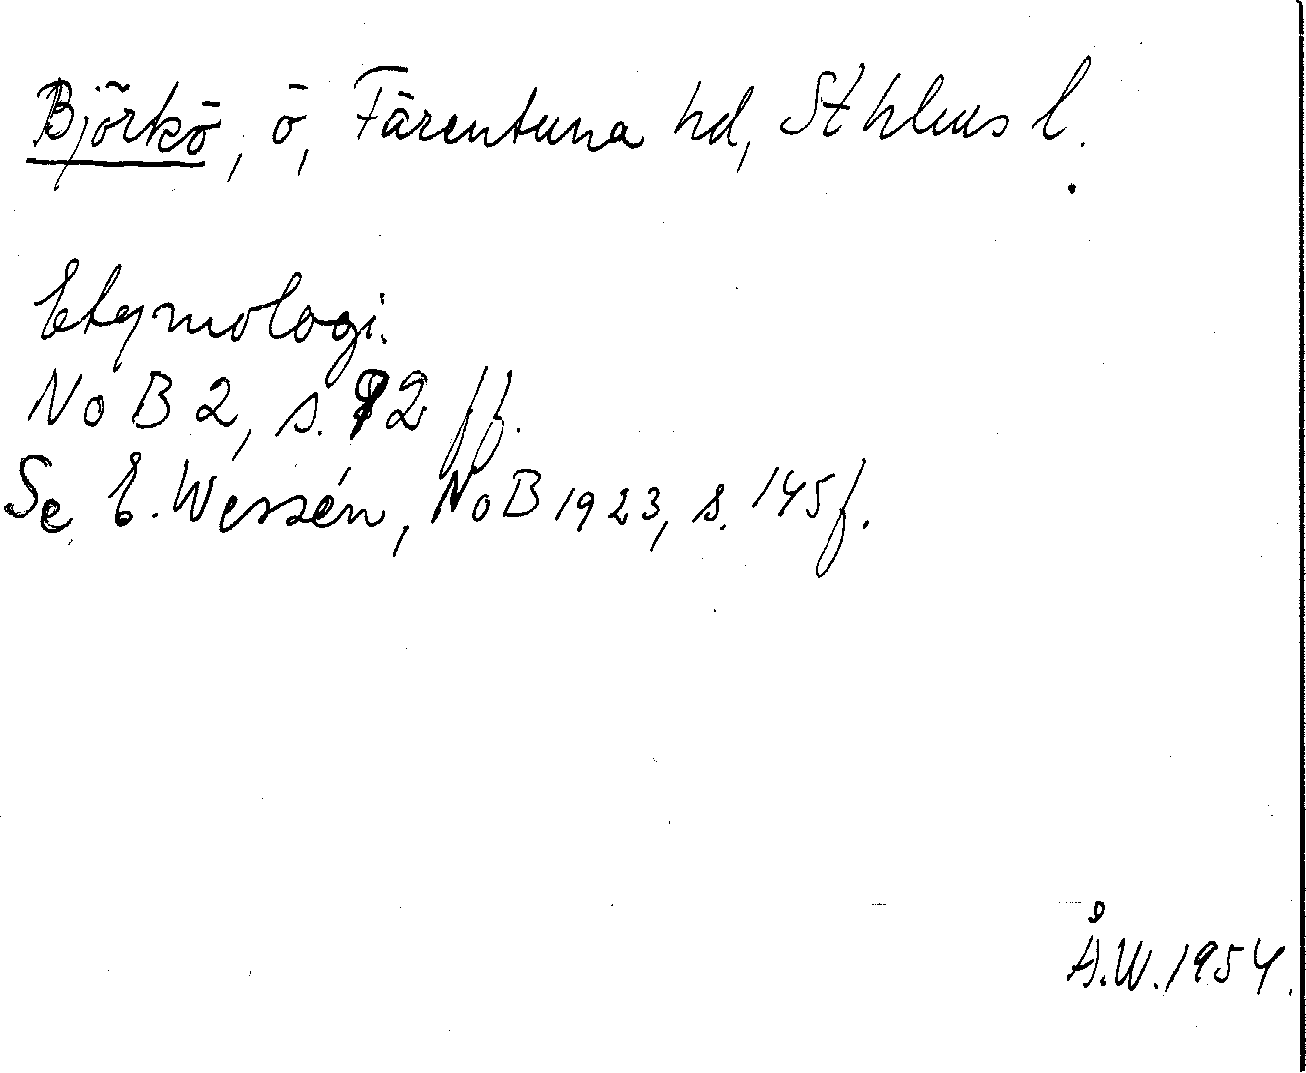 Björkö, ö, Färentuna hd, Sthlms l.
Etymologi.
NoB 2, s. 92 ff.
Se E. Wessén, NoB 1923, s. 145 f.
Å.W. 1954.